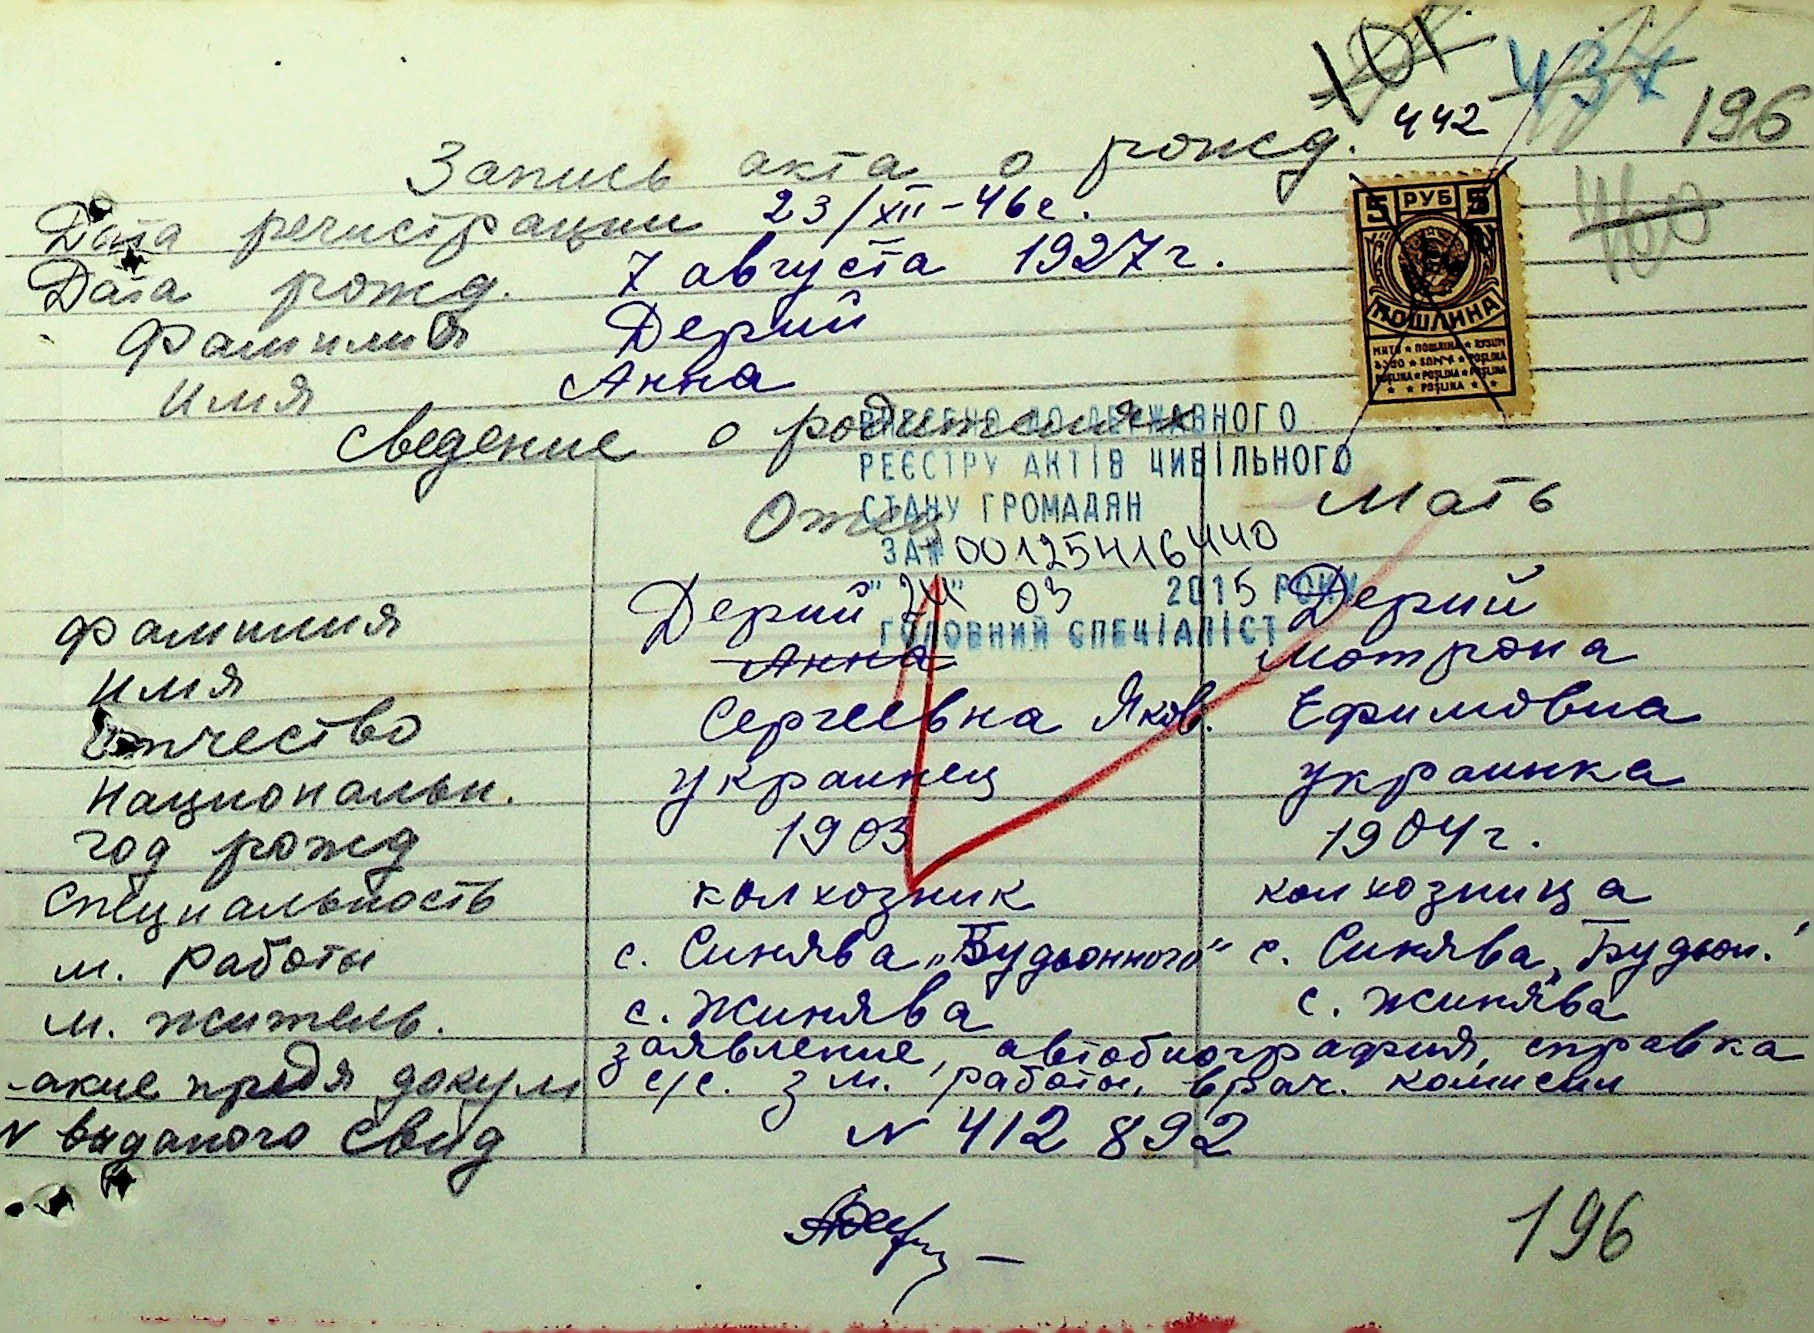 101 437
442 196
460
Запись акта о рожд.
Дата регистрации 23/XII-46г.
Дата рожд. 7 августа 1927г.
Фамилия Дерий
Имя Анна
5 РУБ 5
ПОШЛИНА
Сведение о родителях
ВНЕСЕНО ДО ДЕРЖАВНОГО
РЕЄСТРУ АКТІВ ЦИВІЛЬНОГО
СТАНУ ГРОМАДЯН
ЗА № 00125416440
"24" 03 2015 РОКУ
ГОЛОВНИЙ СПЕЦІАЛІСТ
Отец Мать
Фамилия Дерий Дерий
Имя Анна Мотрона
Отчество Сергеевна Яков. Ефимовна
Национальн. украинец украинка
год рожд 1903 1904г.
Специальность колхозник колхозница
м. работы с. Синява „Будьонного" с. Синява „Будьон.
м. житель. с. Жинява с. Жинява
-акие предя докум заявление, автобиография, справка
с/с. з м. работы, врач. комисии
N выданого Свид N 412 892
196